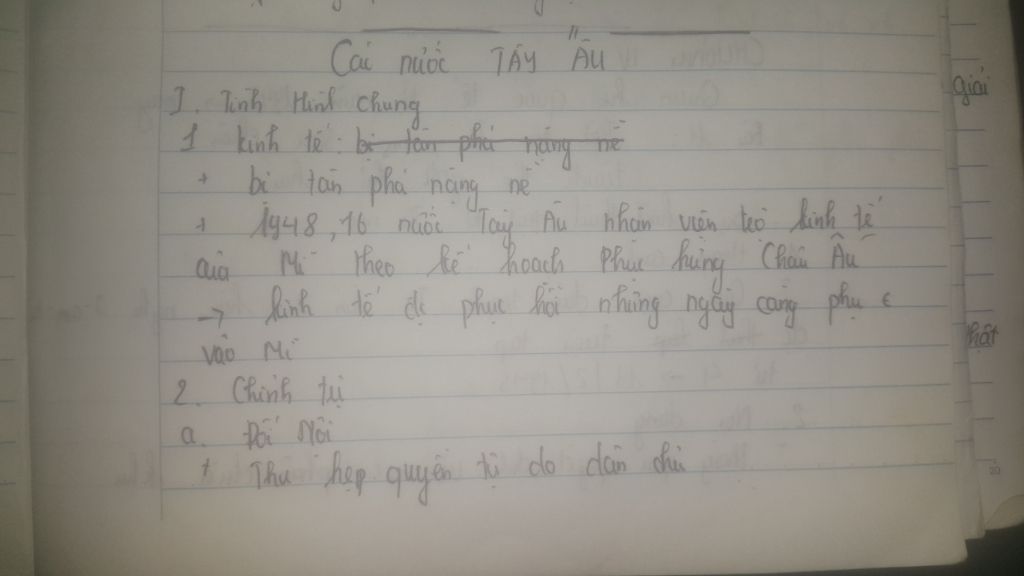 Các nước TÂY ÂU
I. Tình Hình Chung
1 kinh tế : bị tàn phá nặng nề
+ bị tàn phá nặng nề
+ 1948, 16 nước Tây Âu nhận viện trợ kinh tế
của Mĩ theo kế hoạch Phục hưng Châu Âu
→ kinh tế đc phục hồi nhưng ngày càng phụ
vào Mĩ
2. Chính trị
a. Đối Nội
+ Thu hẹp quyền tự do dân chủ
giải